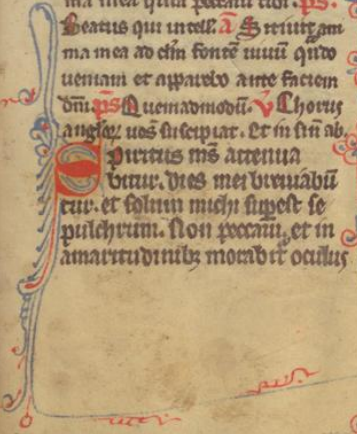 ma mea quia peccaui tibi. ps.
Beatus qui intell. A Sitiuit ani
ma mea ad dm fontē uiuū qn̄do
ueniam et apparebo ante faciem
dn̄i. ps Quemadmodū. V Chorus
anglor̄ uos suscipiat. Et in sin ab.
Spiritus ms attenua
bitur. dies mei breuiabū
tur. et solum michi supest se
pulchrum. Non peccaui, et in
amaritudinibz morabit oculus